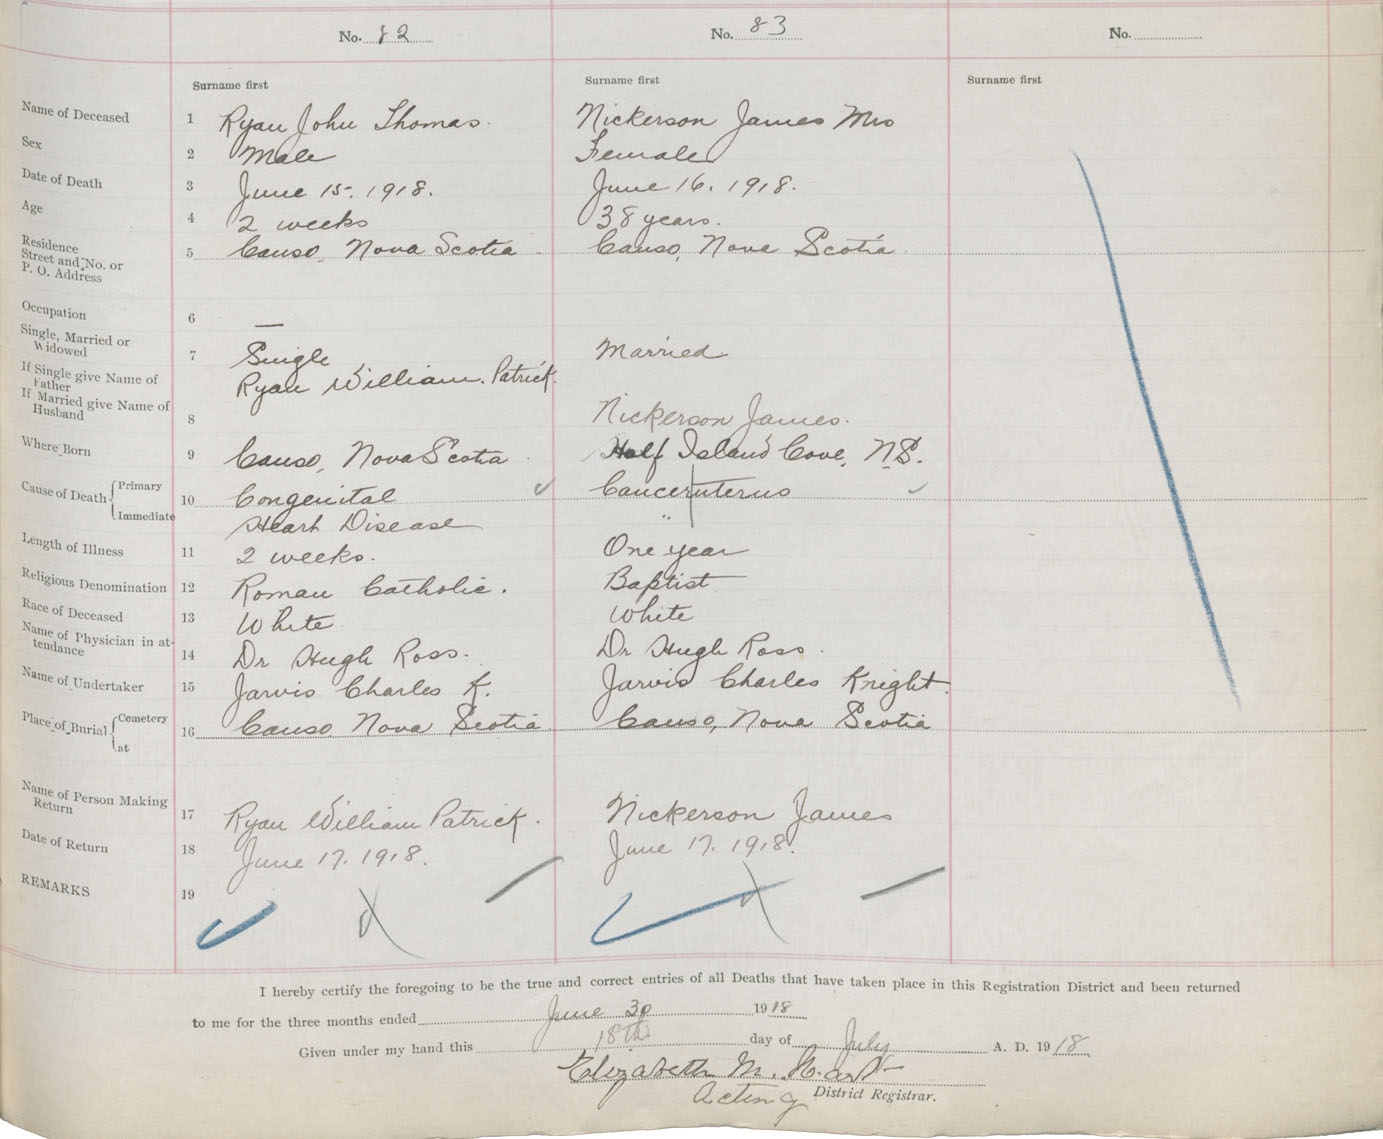 No. 82 No. 83 No.
Surname first Surname first Surname first
Name of Deceased 1 Ryan John Thomas. Nickerson James Mrs
Sex 2 Male Female
Date of Death 3 June 15. 1918. June 16. 1918.
Age 4 2 weeks 38 years.
Residence
Street and No. or 5 Canso, Nova Scotia Canso, Nova Scotia
P. O. Address
Occupation 6 —
Single, Married or
Widowed 7 Single Married
If Single give Name of
Father Ryan William. Patrick.
If Married give Name of
Husband 8 Nickerson James.
Where Born 9 Canso, Nova Scotia Half Island Cove, N.S.
Cause of Death { Primary 10 Congenital Cancer uterus
Immediate Heart Disease "
Length of Illness 11 2 weeks. One year
Religious Denomination 12 Roman Catholic. Baptist
Race of Deceased 13 White White
Name of Physician in at-
tendance 14 Dr Hugh Ross. Dr Hugh Ross.
Name of Undertaker 15 Jarvis Charles K. Jarvis Charles Knight.
Place of Burial { Cemetery 16 Canso Nova Scotia Canso, Nova Scotia
at
Name of Person Making
Return 17 Ryan William Patrick. Nickerson James
Date of Return 18 June 17. 1918. June 17. 1918.
REMARKS 19
I hereby certify the foregoing to be the true and correct entries of all Deaths that have taken place in this Registration District and been returned
to me for the three months ended June 30 1918
Given under my hand this 18th day of July A. D. 1918.
Elizabeth M. Hart
Acting District Registrar.